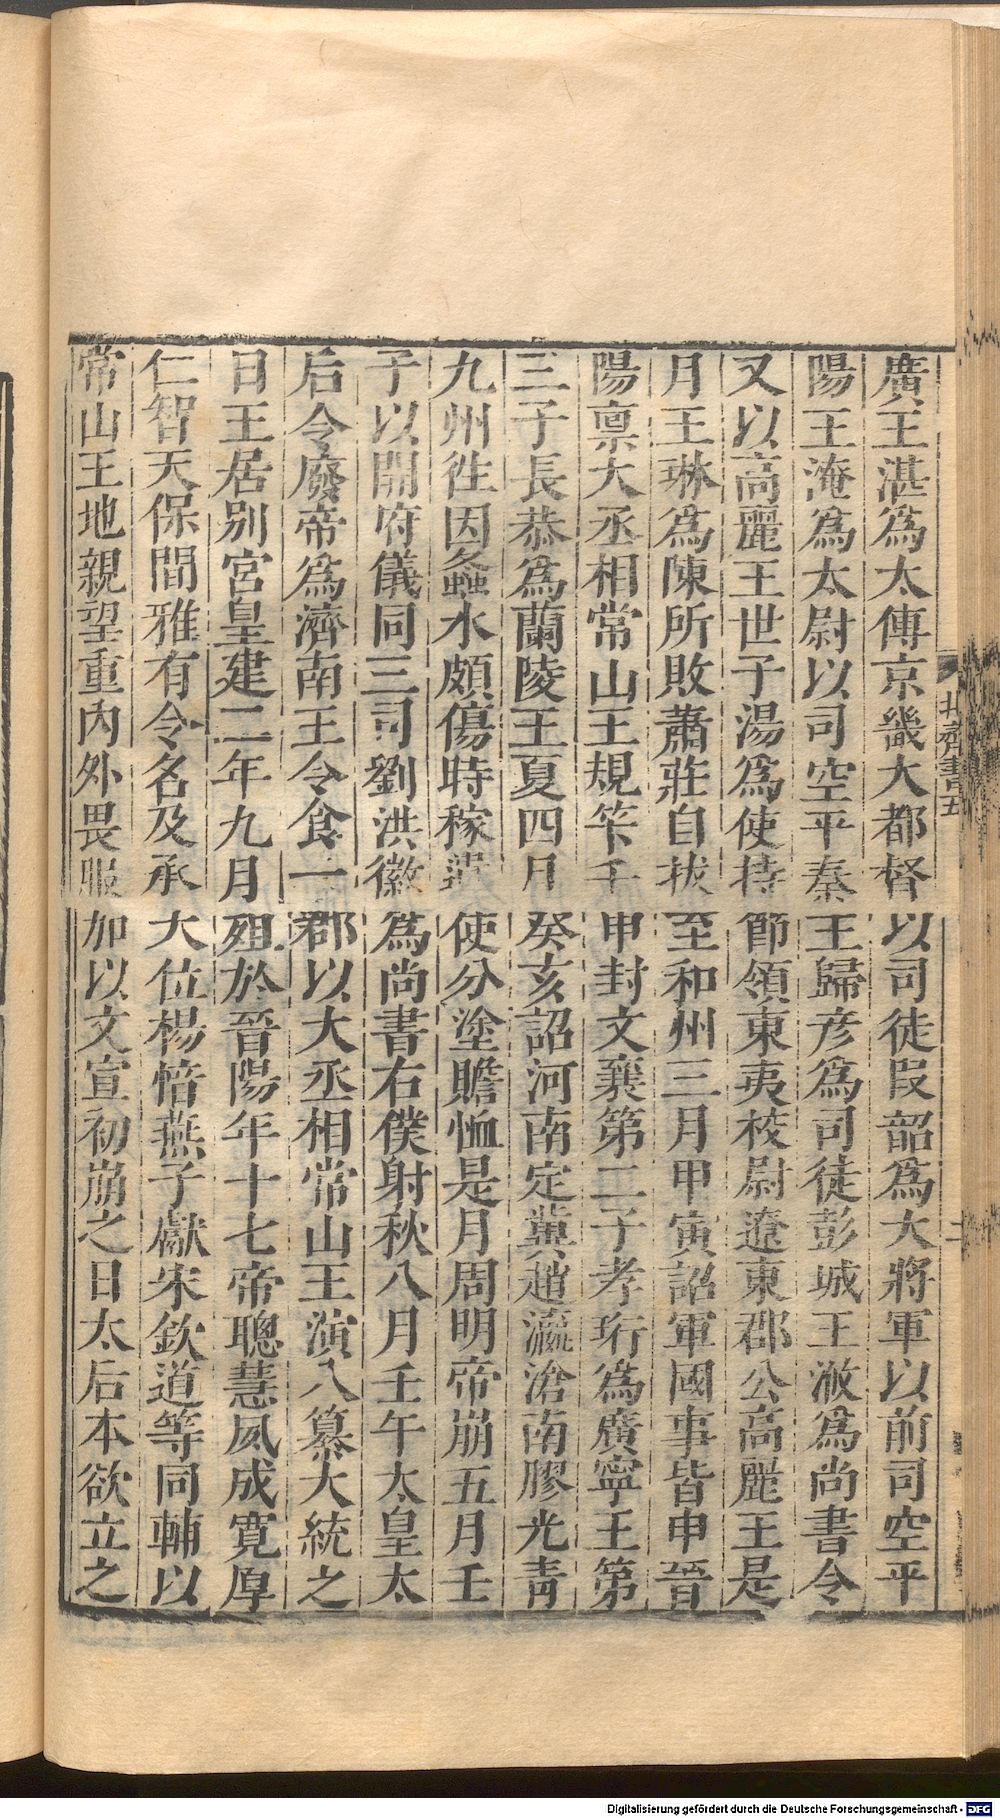 廣王湛爲太傅京畿大都督以司徒叚韶爲大將軍以前司空平
陽王淹爲太尉以司空平秦王歸彦爲司徒彭城王浟爲尚書令
又以高麗王世子湯爲使持節領東夷校尉遼東郡公高麗王是
月王琳爲陳所敗蕭莊自拔至和州三月甲寅詔軍國事皆申晉
陽禀大丞相常山王規筭壬申封文襄第二子孝珩爲廣寧王第
三子長恭爲蘭陵王夏四月癸亥詔河南定冀趙瀛滄南膠光靑
九州徃因螽水頗傷時稼遣使分塗贍恤是月周明帝崩五月壬
子以開府儀同三司劉洪徽爲尚書右僕射秋八月壬午太皇太
后令廢帝爲濟南王令食一郡以大丞相常山王演入纂大統之
日王居别宮皇建二年九月殂於晉陽年十七帝聰慧夙成寛厚
仁智天保間雅有令名及承大位楊愔燕子獻宋欽道等同輔以
常山王地親望重內外畏服加以文宣初崩之日太后本欲立之
北齊書五
Digitalisierung gefördert durch die Deutsche Forschungsgemeinschaft - DFG